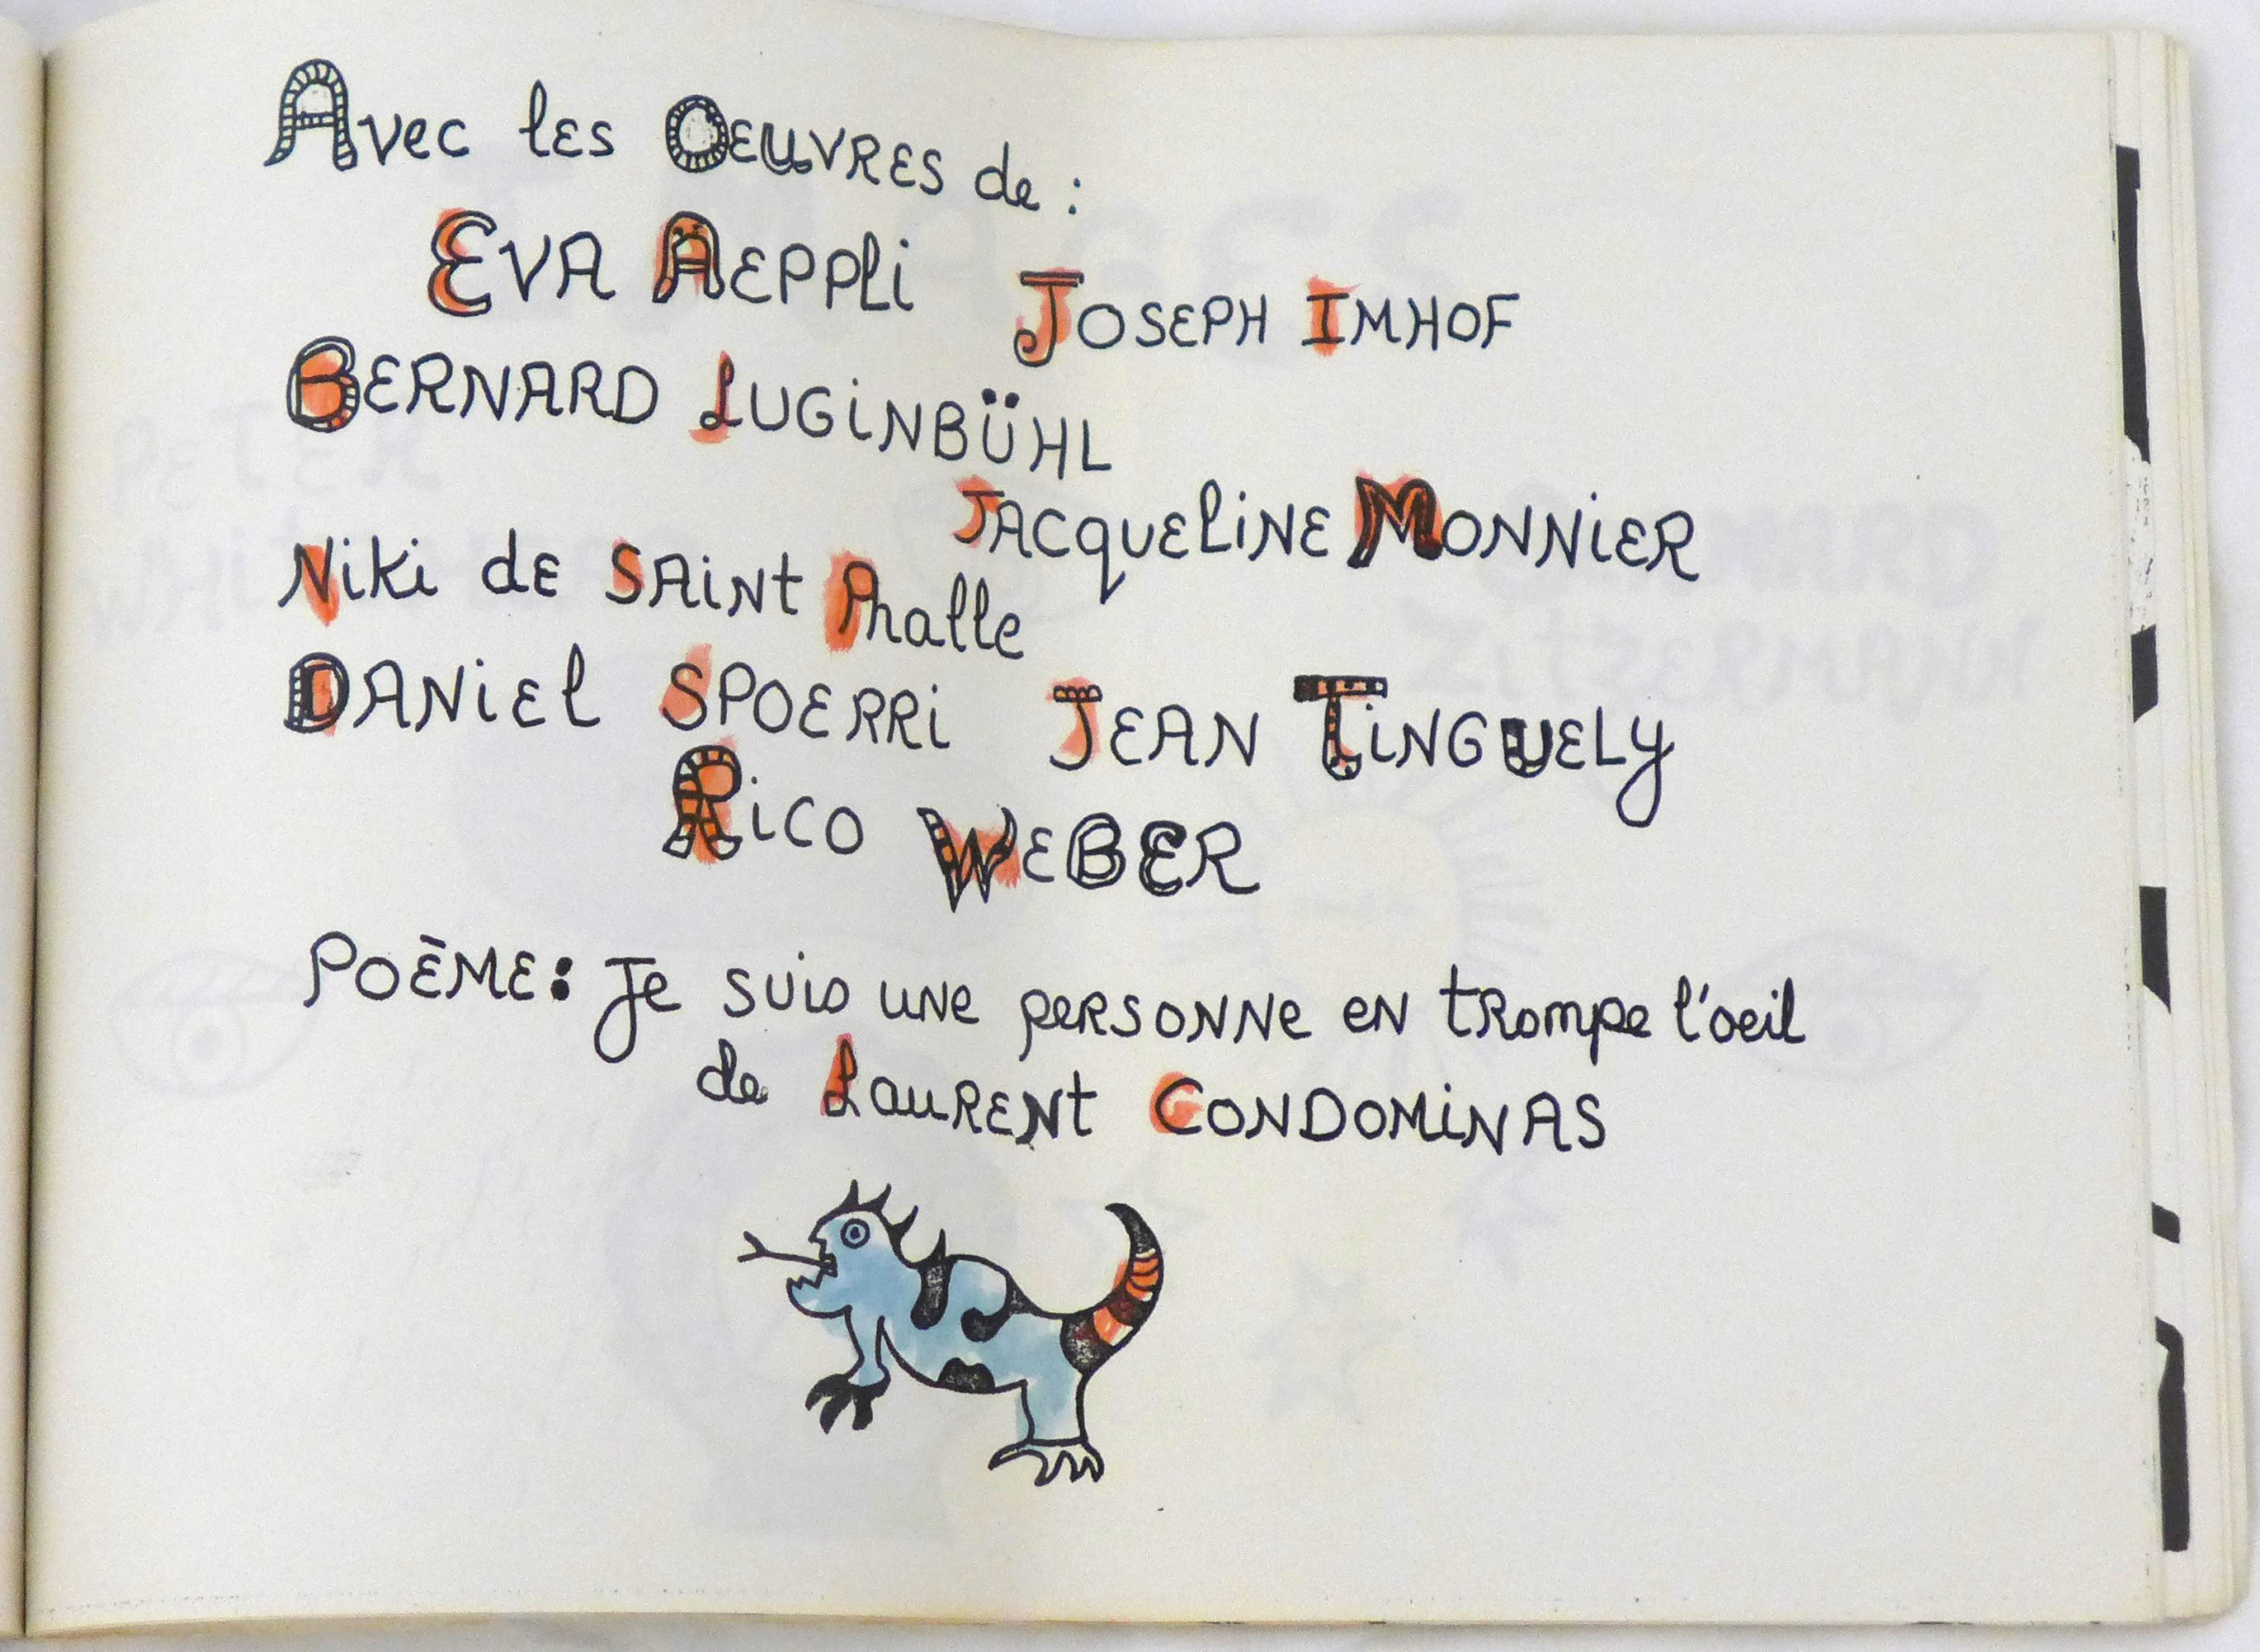 Avec les Oeuvres de :
Eva Aeppli
Joseph Imhof
Bernard Luginbühl
Jacqueline Monnier
Niki de Saint Phalle
Daniel Spoerri Jean Tinguely
Rico Weber
Poème : Je suis une personne en trompe l'oeil
de Laurent Condominas